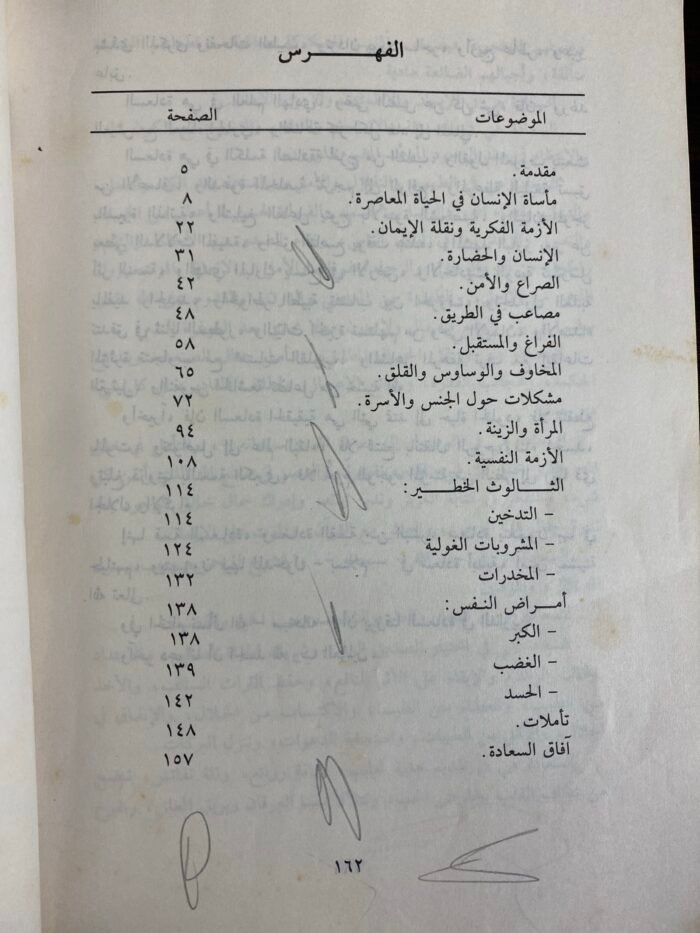 الفهـــــرس
الموضوعات الصفحة
مقدمة. ٥
مأساة الإنسان في الحياة المعاصرة. ٨
الأزمة الفكرية ونقلة الإيمان. ٢٢
الإنسان والحضارة. ٣١
الصراع والأمن. ٤٢
مصاعب في الطريق. ٤٨
الفراغ والمستقبل. ٥٨
المخاوف والوساوس والقلق. ٦٥
مشكلات حول الجنس والأسرة. ٧٢
المرأة والزينة. ٩٤
الأزمة النفسية. ١٠٨
الثـــالوث الخطـــير: ١١٤
– التدخين ١١٤
– المشروبات الغولية ١٢٤
– المخدرات ١٣٢
أمـــراض النـفس: ١٣٨
– الكبر ١٣٨
– الغضب ١٣٩
– الحسد ١٤٢
تأملات. ١٤٨
آفاق السعادة. ١٥٧
١٦٢